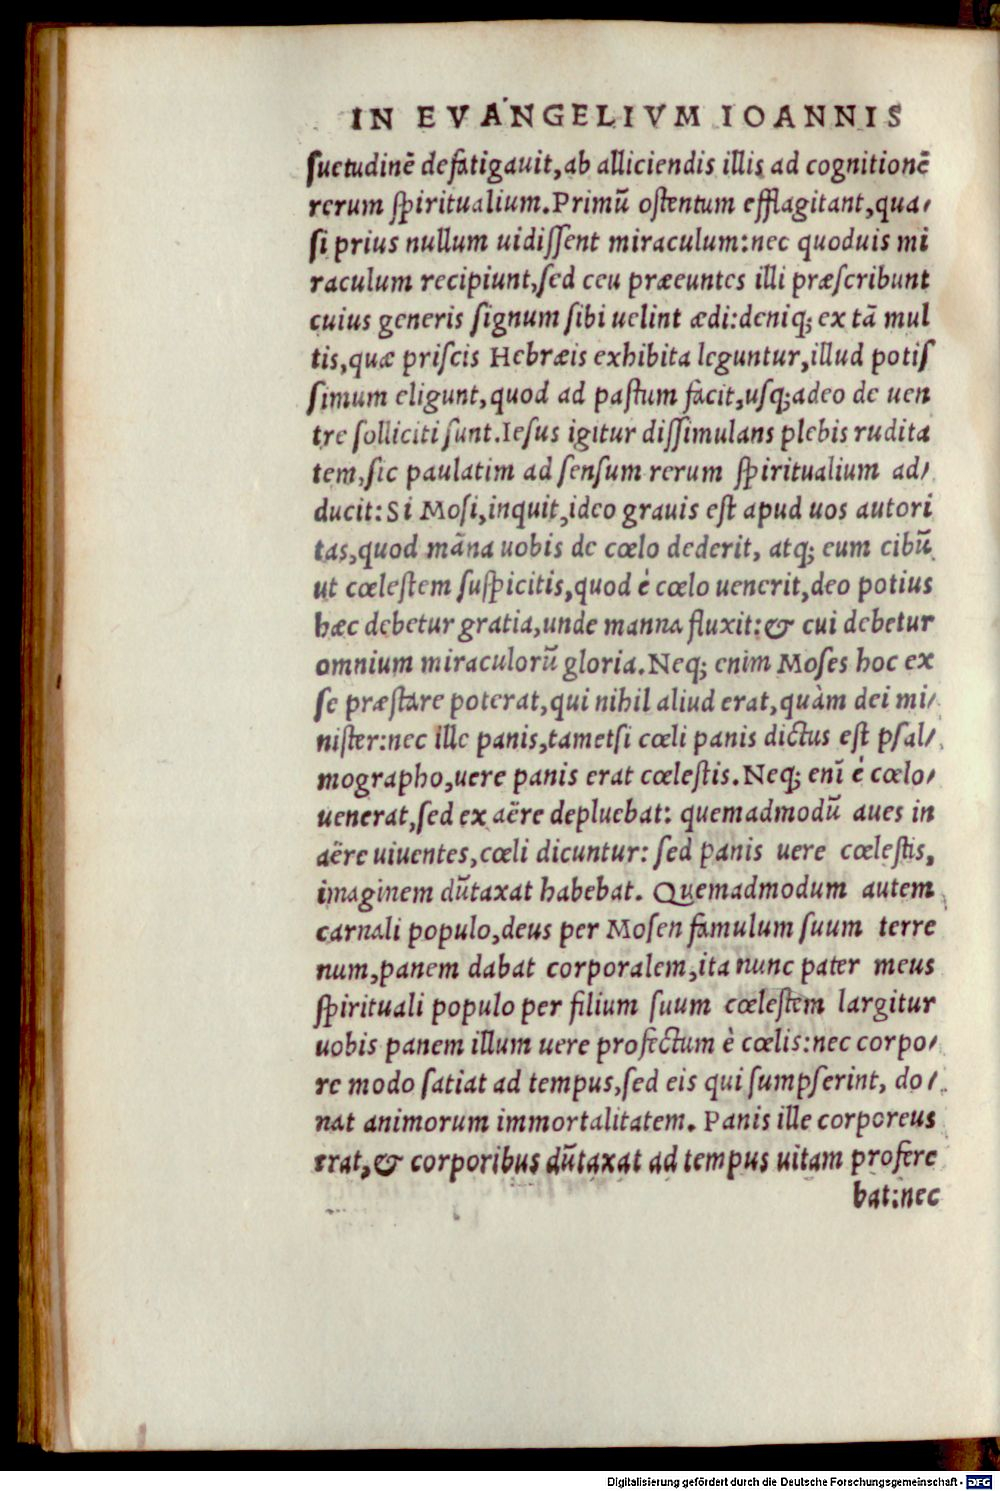 IN EVANGELIVM IOANNIS
ſuetudinē defatigauit, ab alliciendis illis ad cognitionē
rerum ſpiritualium. Primū oſtentum efflagitant, qua⸗
ſi prius nullum uidiſſent miraculum: nec quoduis mi
raculum recipiunt, ſed ceu præeuntes illi præſcribunt
cuius generis ſignum ſibi uelint ædi: deniq; ex tā mul
tis, quæ priſcis Hebræis exhibita leguntur, illud potiſ
ſimum eligunt, quod ad paſtum facit, uſq; adeo de uen
tre ſolliciti ſunt. Ieſus igitur diſſimulans plebis rudita
tem, ſic paulatim ad ſenſum rerum ſpiritualium ad⸗
ducit: Si Moſi, inquit, ideo grauis eſt apud uos autori
tas, quod māna uobis de cœlo dederit, atq; eum cibū
ut cœleſtem ſuſpicitis, quod è cœlo uenerit, deo potius
hæc debetur gratia, unde manna fluxit: & cui debetur
omnium miraculorū gloria. Neq; enim Moſes hoc ex
ſe præſtare poterat, qui nihil aliud erat, quàm dei mi⸗
niſter: nec ille panis, tametſi cœli panis dictus eſt pſal⸗
mographo, uere panis erat cœleſtis. Neq; enī è cœlo⸗
uenerat, ſed ex aëre depluebat: quemadmodū aues in
aëre uiuentes, cœli dicuntur: ſed panis uere cœleſtis,
imaginem dūtaxat habebat. Quemadmodum autem
carnali populo, deus per Moſen famulum ſuum terre
num, panem dabat corporalem, ita nunc pater meus
ſpirituali populo per filium ſuum cœleſtem largitur
uobis panem illum uere profectum è cœlis: nec corpo⸗
re modo ſatiat ad tempus, ſed eis qui ſumpſerint, do⸗
nat animorum immortalitatem. Panis ille corporeus
erat, & corporibus dūtaxat ad tempus uitam profere
bat: nec
Digitalisierung gefördert durch die Deutsche Forschungsgemeinschaft - DFG